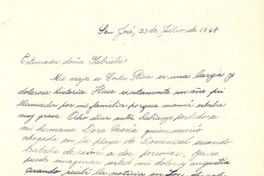 San José, 23 de Julio de 1948
Estimada doña Gabriela:
Mi viaje a Costa Rica es una larga y
dolorosa historia. Hace exactamente un año fui
llamada por mi familia porque mamá estaba
muy grave. Ocho días antes había perdido a
mi hermana Dora María quien murió
ahogada en la playa de cuando
trataba de a dos personas, Ya se
puede imaginar usted mi dolor y angustia
cuando recibí la noticia en